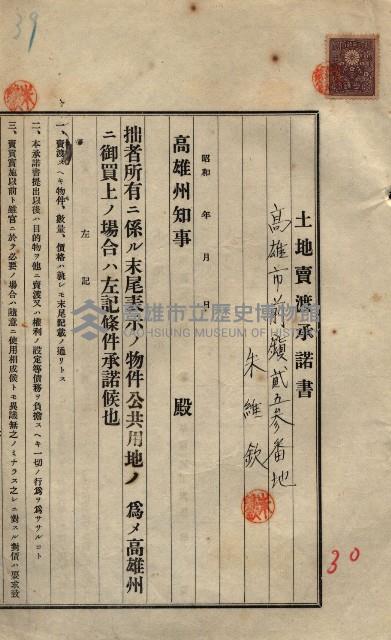 39
土地賣渡承諾書
高雄市前鎮貳五参番地
朱維欽
昭和 年 月 日
高雄州知事 殿
拙者所有ニ係ル末尾表示ノ物件公共用地ノ 為メ高雄州
ニ御買上ノ場合ハ左記條件承諾候也
左記
一、賣渡スヘキ物件、數量、價格ハ總レモ末尾記載ノ通リトス
二、本承諾書提出以後ハ目的物ヲ他ニ賣渡又ハ權利ノ設定等債務ヲ負擔スヘキ一切ノ行為ヲ為ササルコト
三、賣買實施以前ト雖官ニ於テ必要ノ場合ハ隨意ニ使用相成候トモ異議無之ノミナラス之レニ對スル對價ハ要求致
30
高雄市立歷史博物館
KAOHSIUNG MUSEUM OF HISTORY